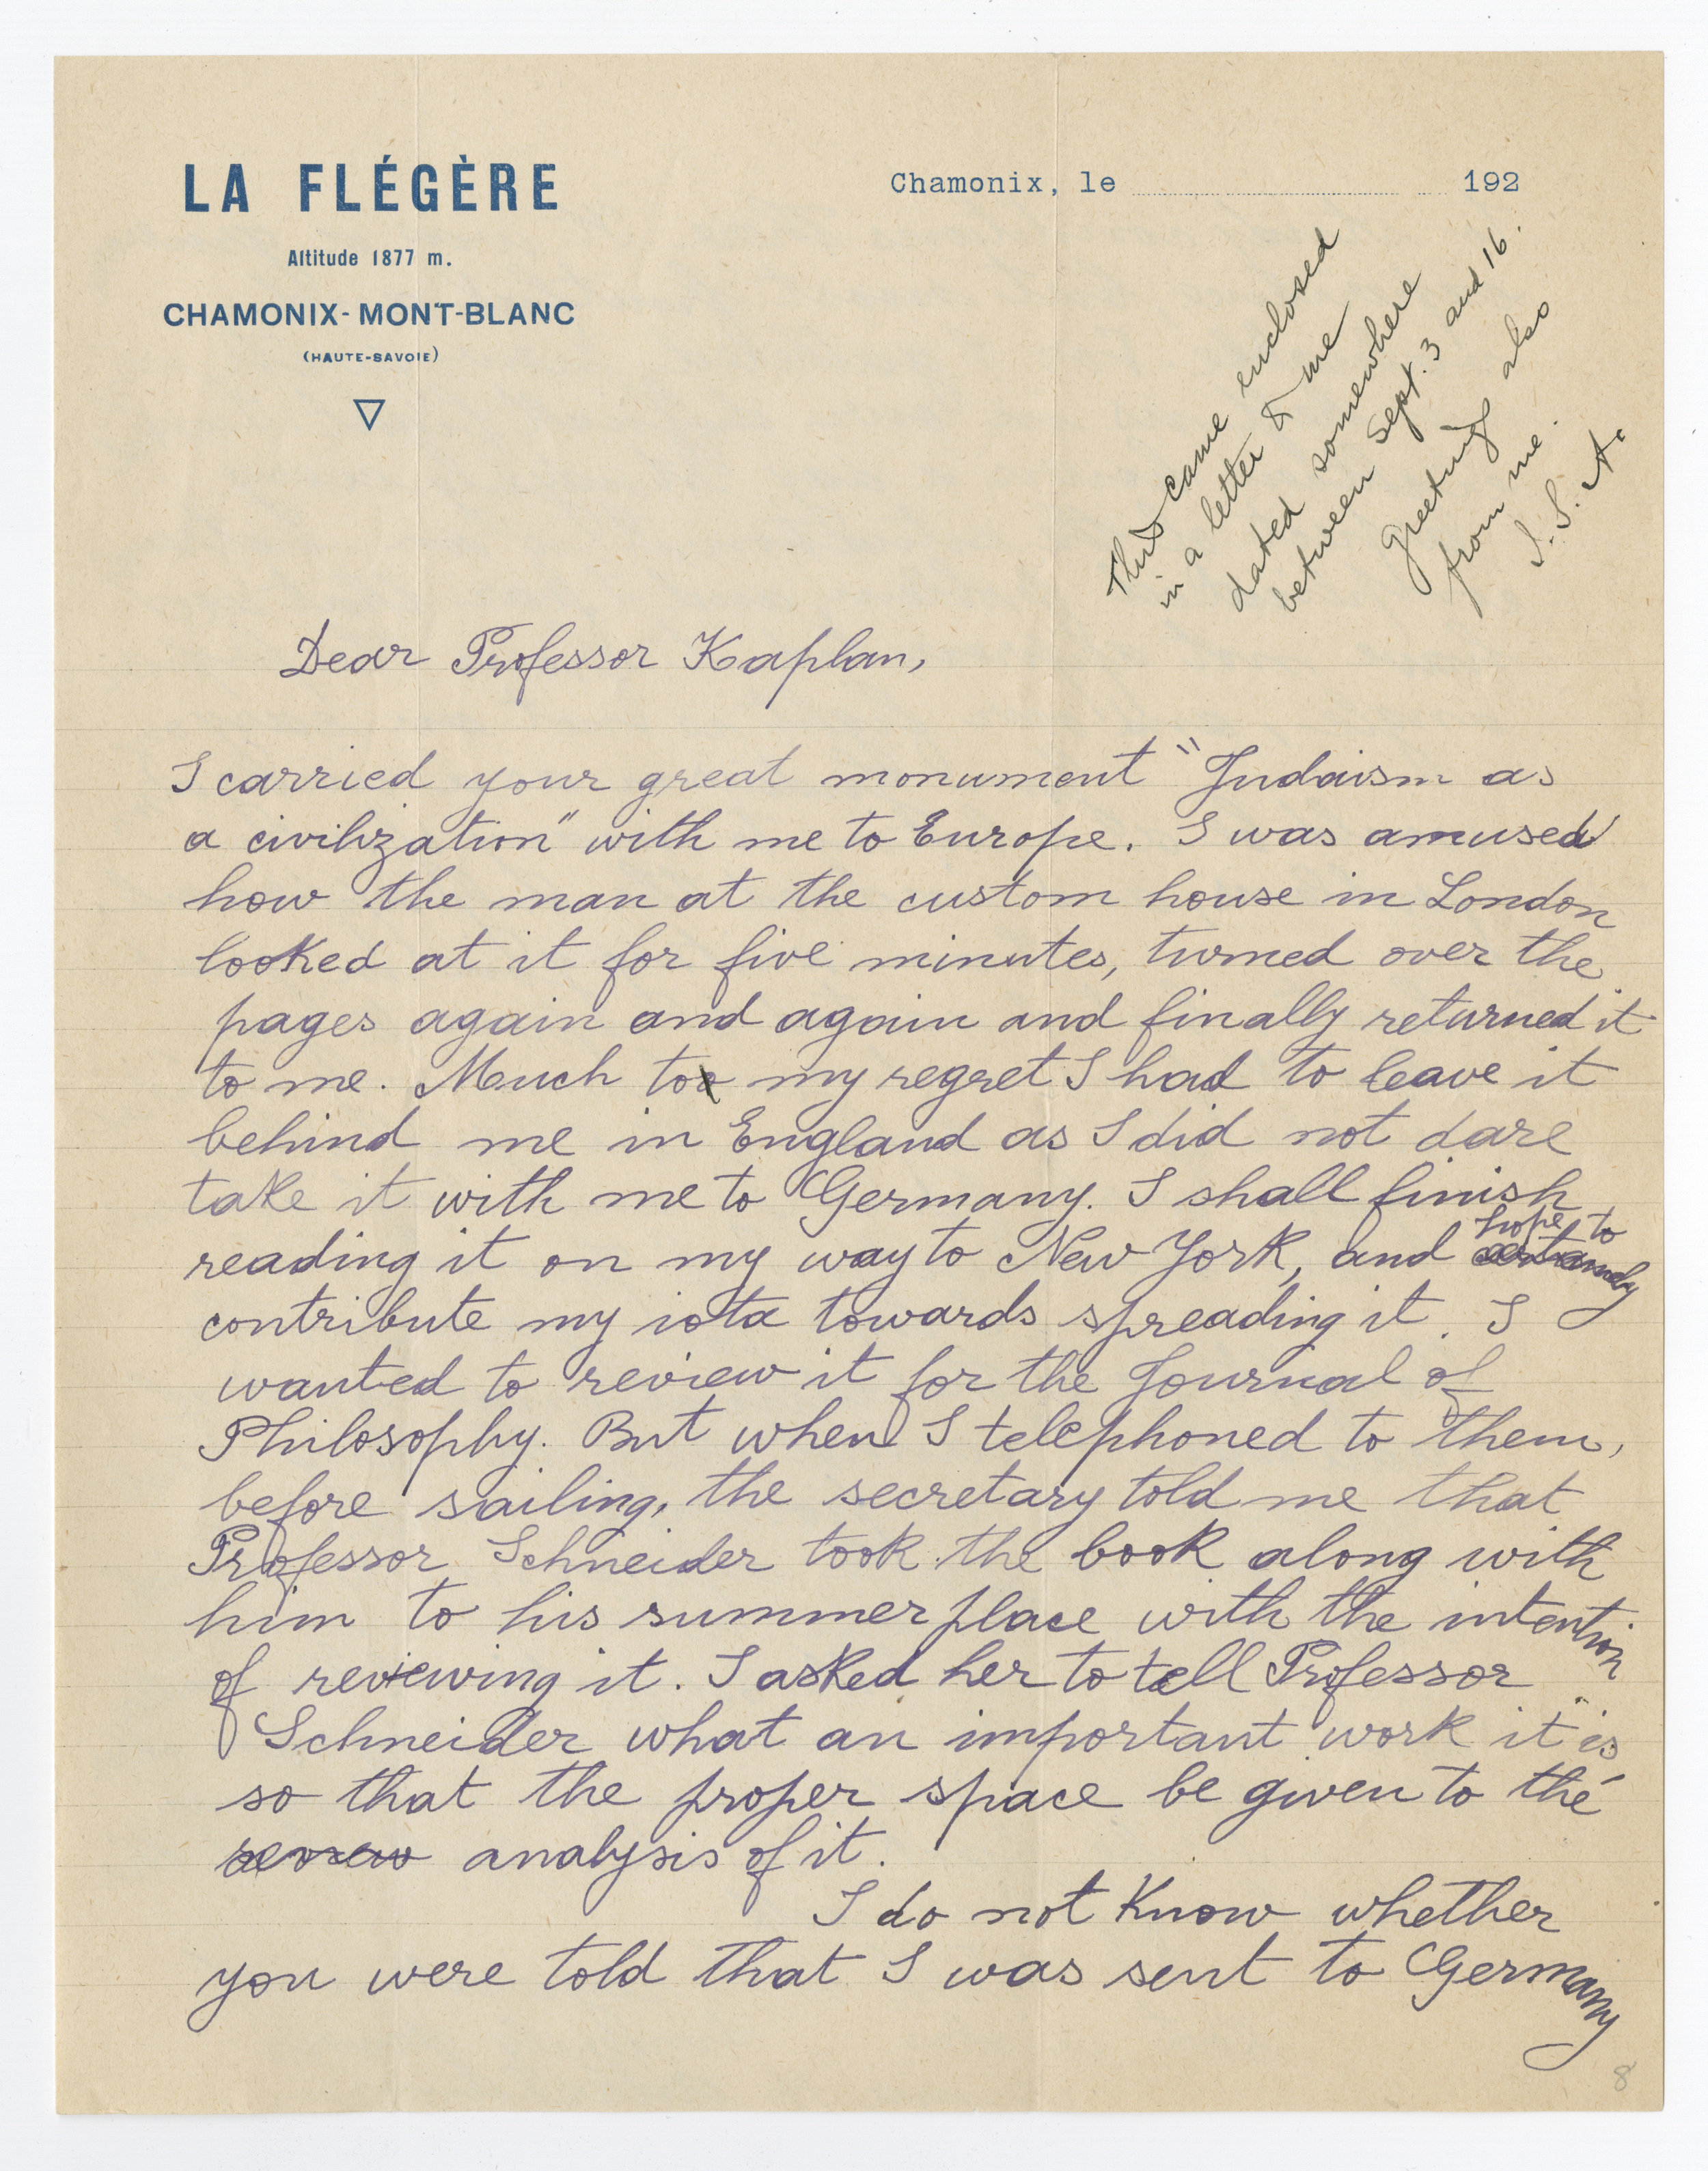 LA FLÉGÈRE
Altitude 1877 m.
CHAMONIX-MONT-BLANC
(HAUTE-SAVOIE)
Chamonix, le 192
This came enclosed
in a letter to me
dated somewhere
between Sept. 3 and 16.
Greetings also
from me.
S. A.
Dear Professor Kaplan,
I carried your great monument "Judaism as
a civilization" with me to Europe. I was amused
how the man at the custom house in London
looked at it for five minutes, turned over the
pages again and again and finally returned it
to me. Much too my regret I had to leave it
behind me in England as I did not dare
take it with me to Germany. I shall finish
reading it on my way to New York, and certainly hope to
contribute my iota towards spreading it. I
wanted to review it for the Journal of
Philosophy. But when I telephoned to them,
before sailing, the secretary told me that
Professor Schneider took the book along with
him to his summer place with the intention
of reviewing it. I asked her to tell Professor
Schneider what an important work it is
so that the proper space be given to the
review analysis of it.
I do not know whether
you were told that I was sent to Germany
8